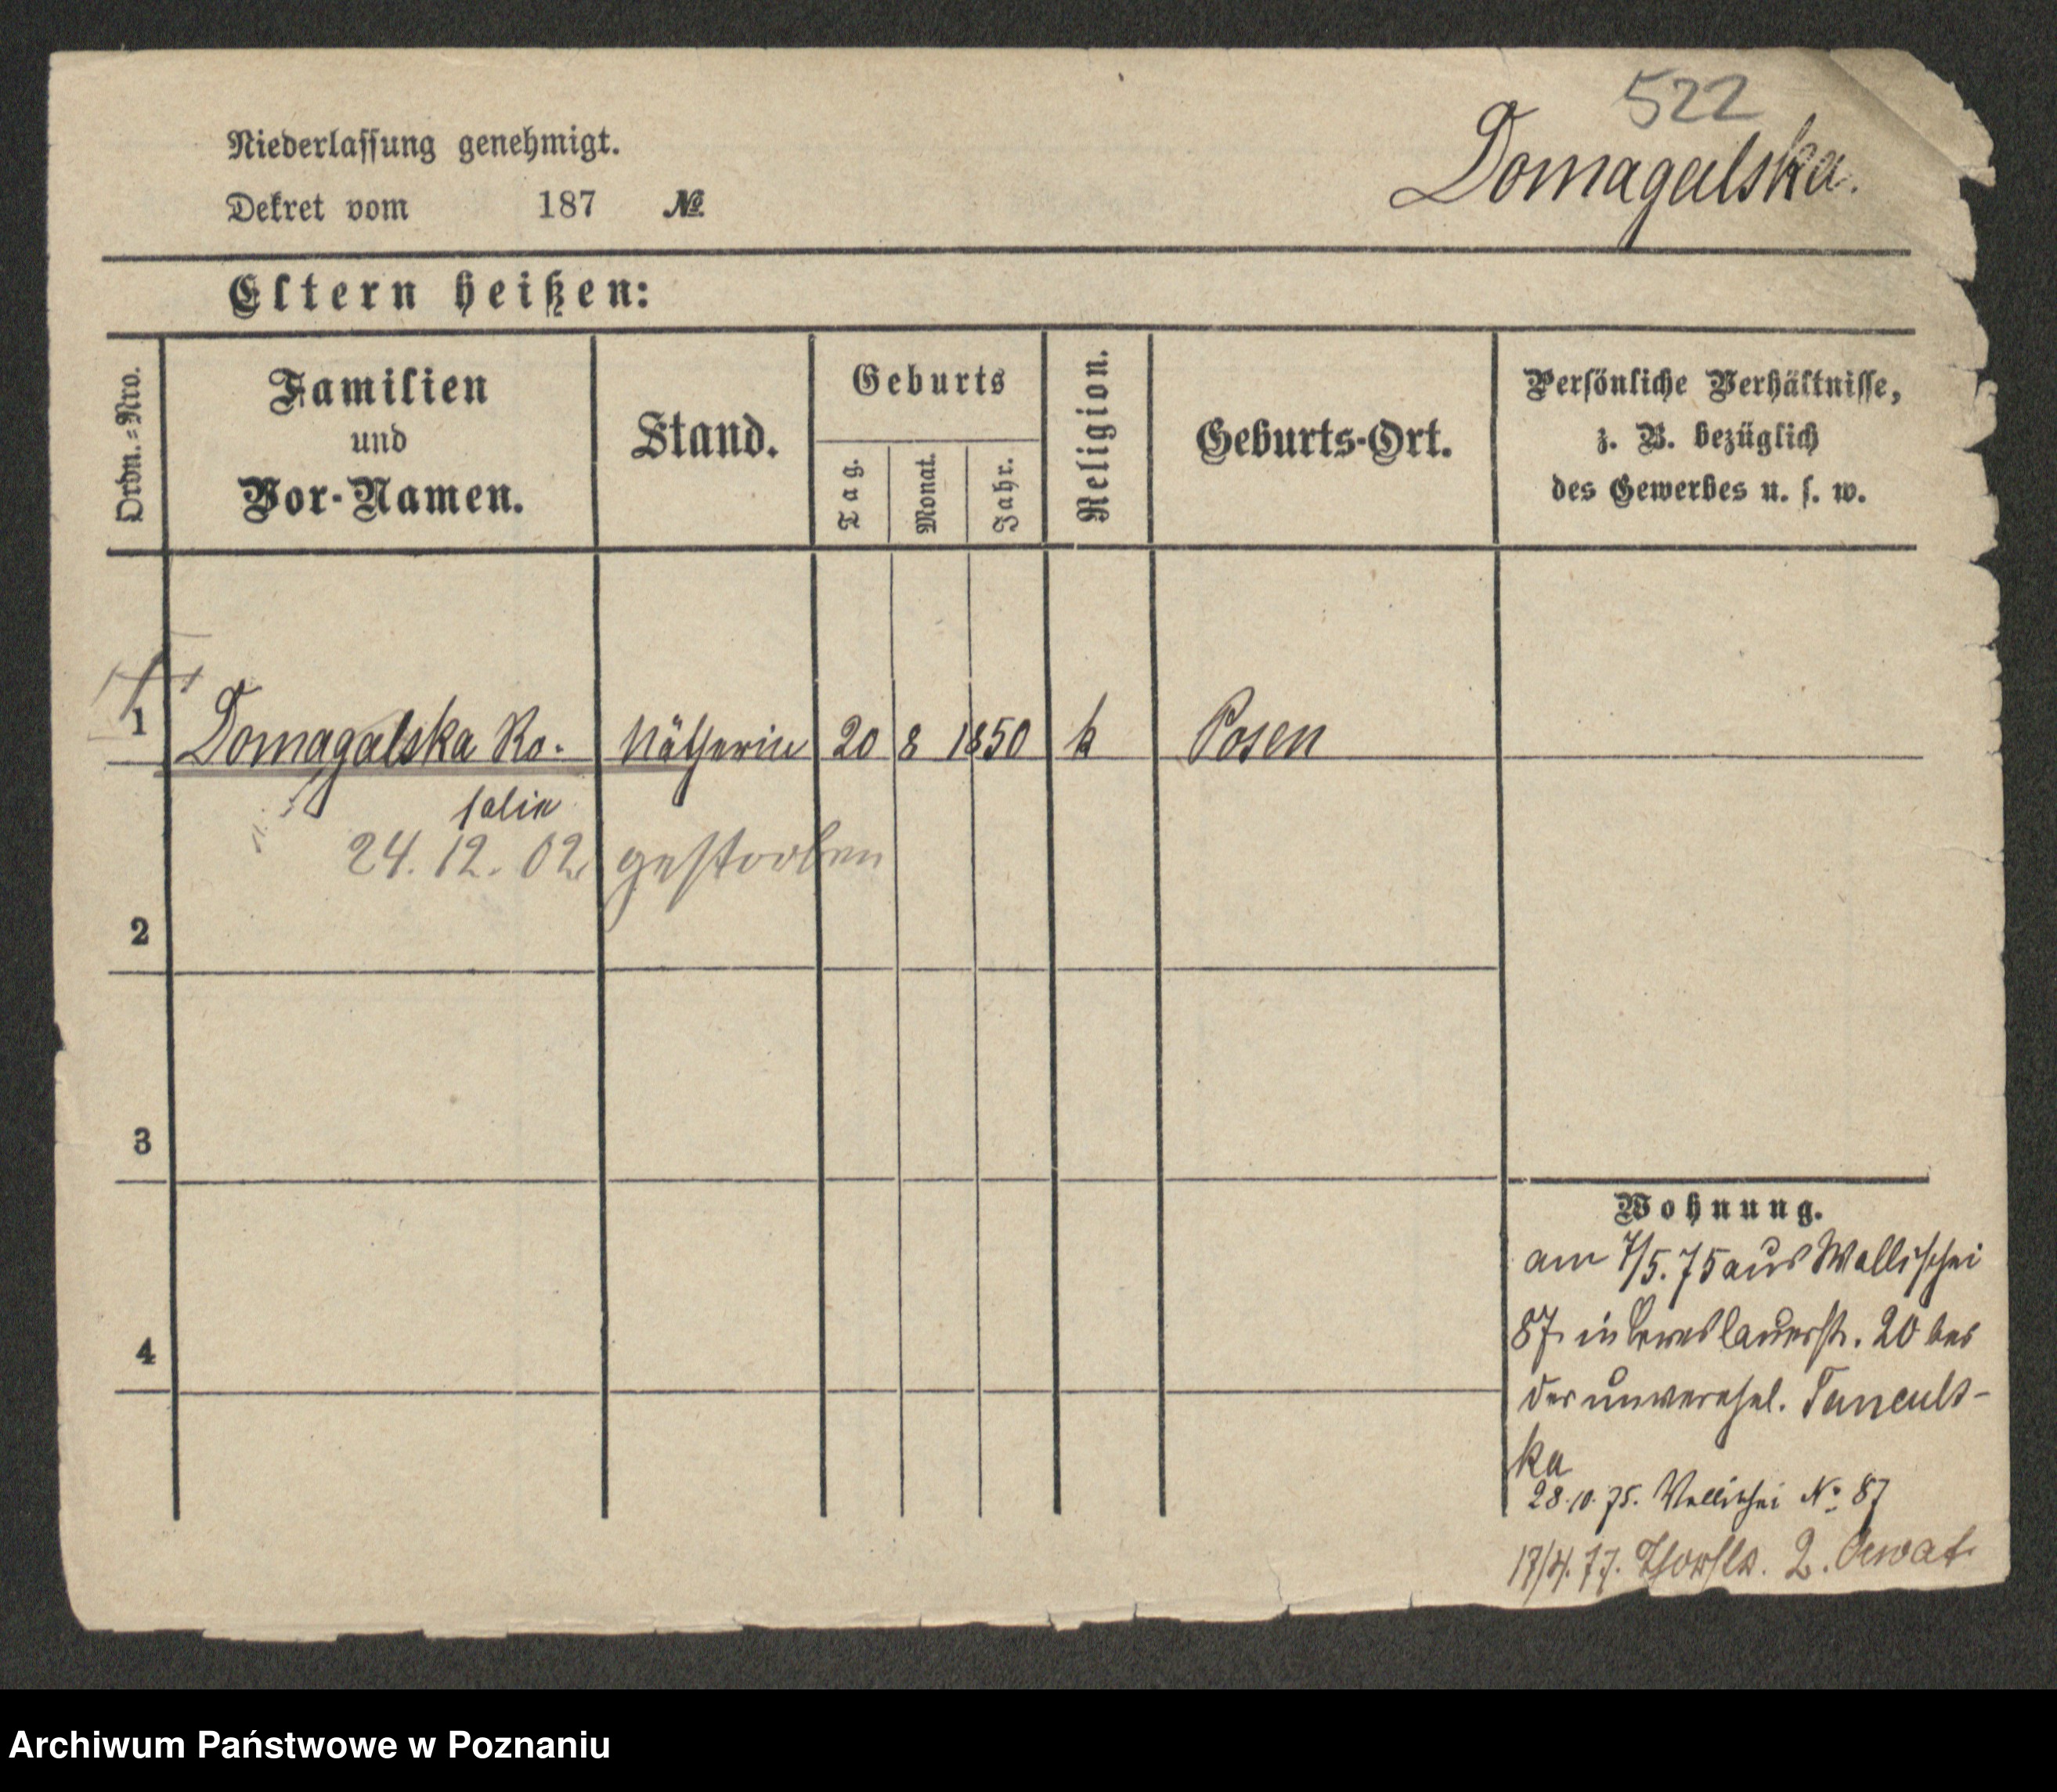 522
Domagalska.
Niederlassung genehmigt.
Dekret vom 187 №
Eltern heißen:
Ordn.=Nro.
Familien
und
Vor-Namen.
Stand.
Geburts
Tag.
Monat.
Jahr.
Religion.
Geburts-Ort.
Persönliche Verhältnisse,
z. B. bezüglich
des Gewerbes u. s. w.
1 Domagalska Ro- Nätherin 20 8 1850 k Posen
salia
24. 12. 02 gestorben
2
3
4
Wohnung.
am 7/5. 75 aus Wallischei
87 in Breslauerstr. 20 bei
der unverehel.
ka
28.10.75. Wallischei No 87
77. 2.
Archiwum Państwowe w Poznaniu